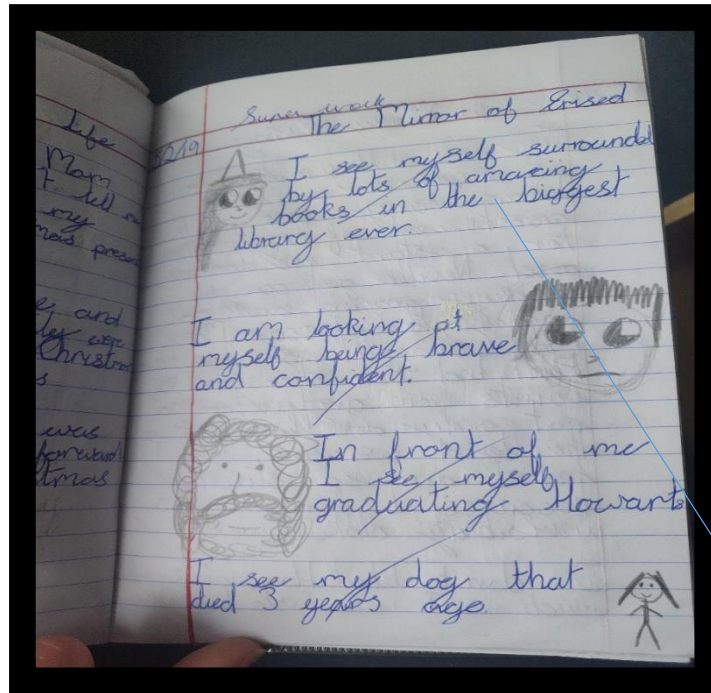 life
Mom
my
e and
Christm
s
was
forward
tmas
5/2/19
Super work
The Mirror of Erised
I see myself surrounded
by lots of amazing
books in the biggest
library ever.
I am looking at
myself being brave
and confident.
In front of me
I see myself
graduating Howarts
I see my dog that
died 3 years ago.